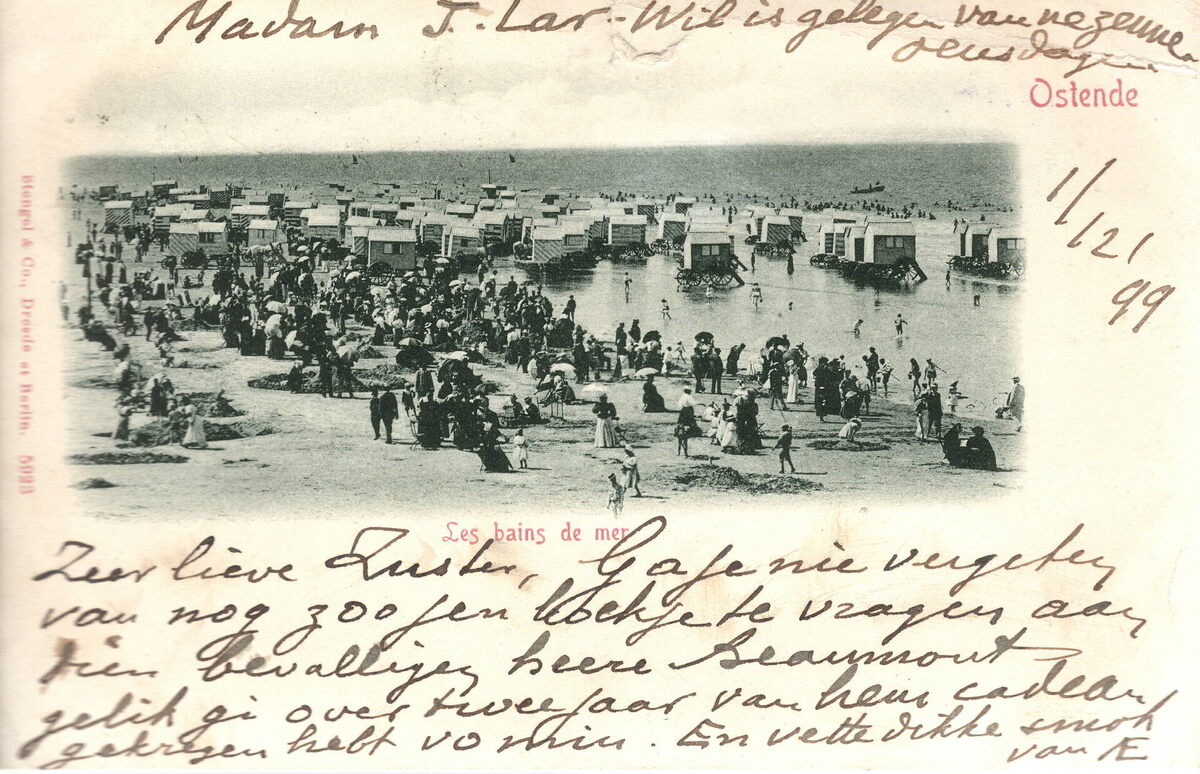 Madam J. Lar - Wil is gelegen van nezenne
densdagen
Ostende
1/121
99
Stengel & Co., Dresde et Berlin. 5923
Les bains de mer
Zeer lieve Zuster, Ga je nie vergeten
van nog zoo jen boekje te vragen aan
dien bevalligen heere Beaumont
gelik gi over twee jaar van hem cadeau
gekregen hebt vo min. En vette dikke smok
van Æ